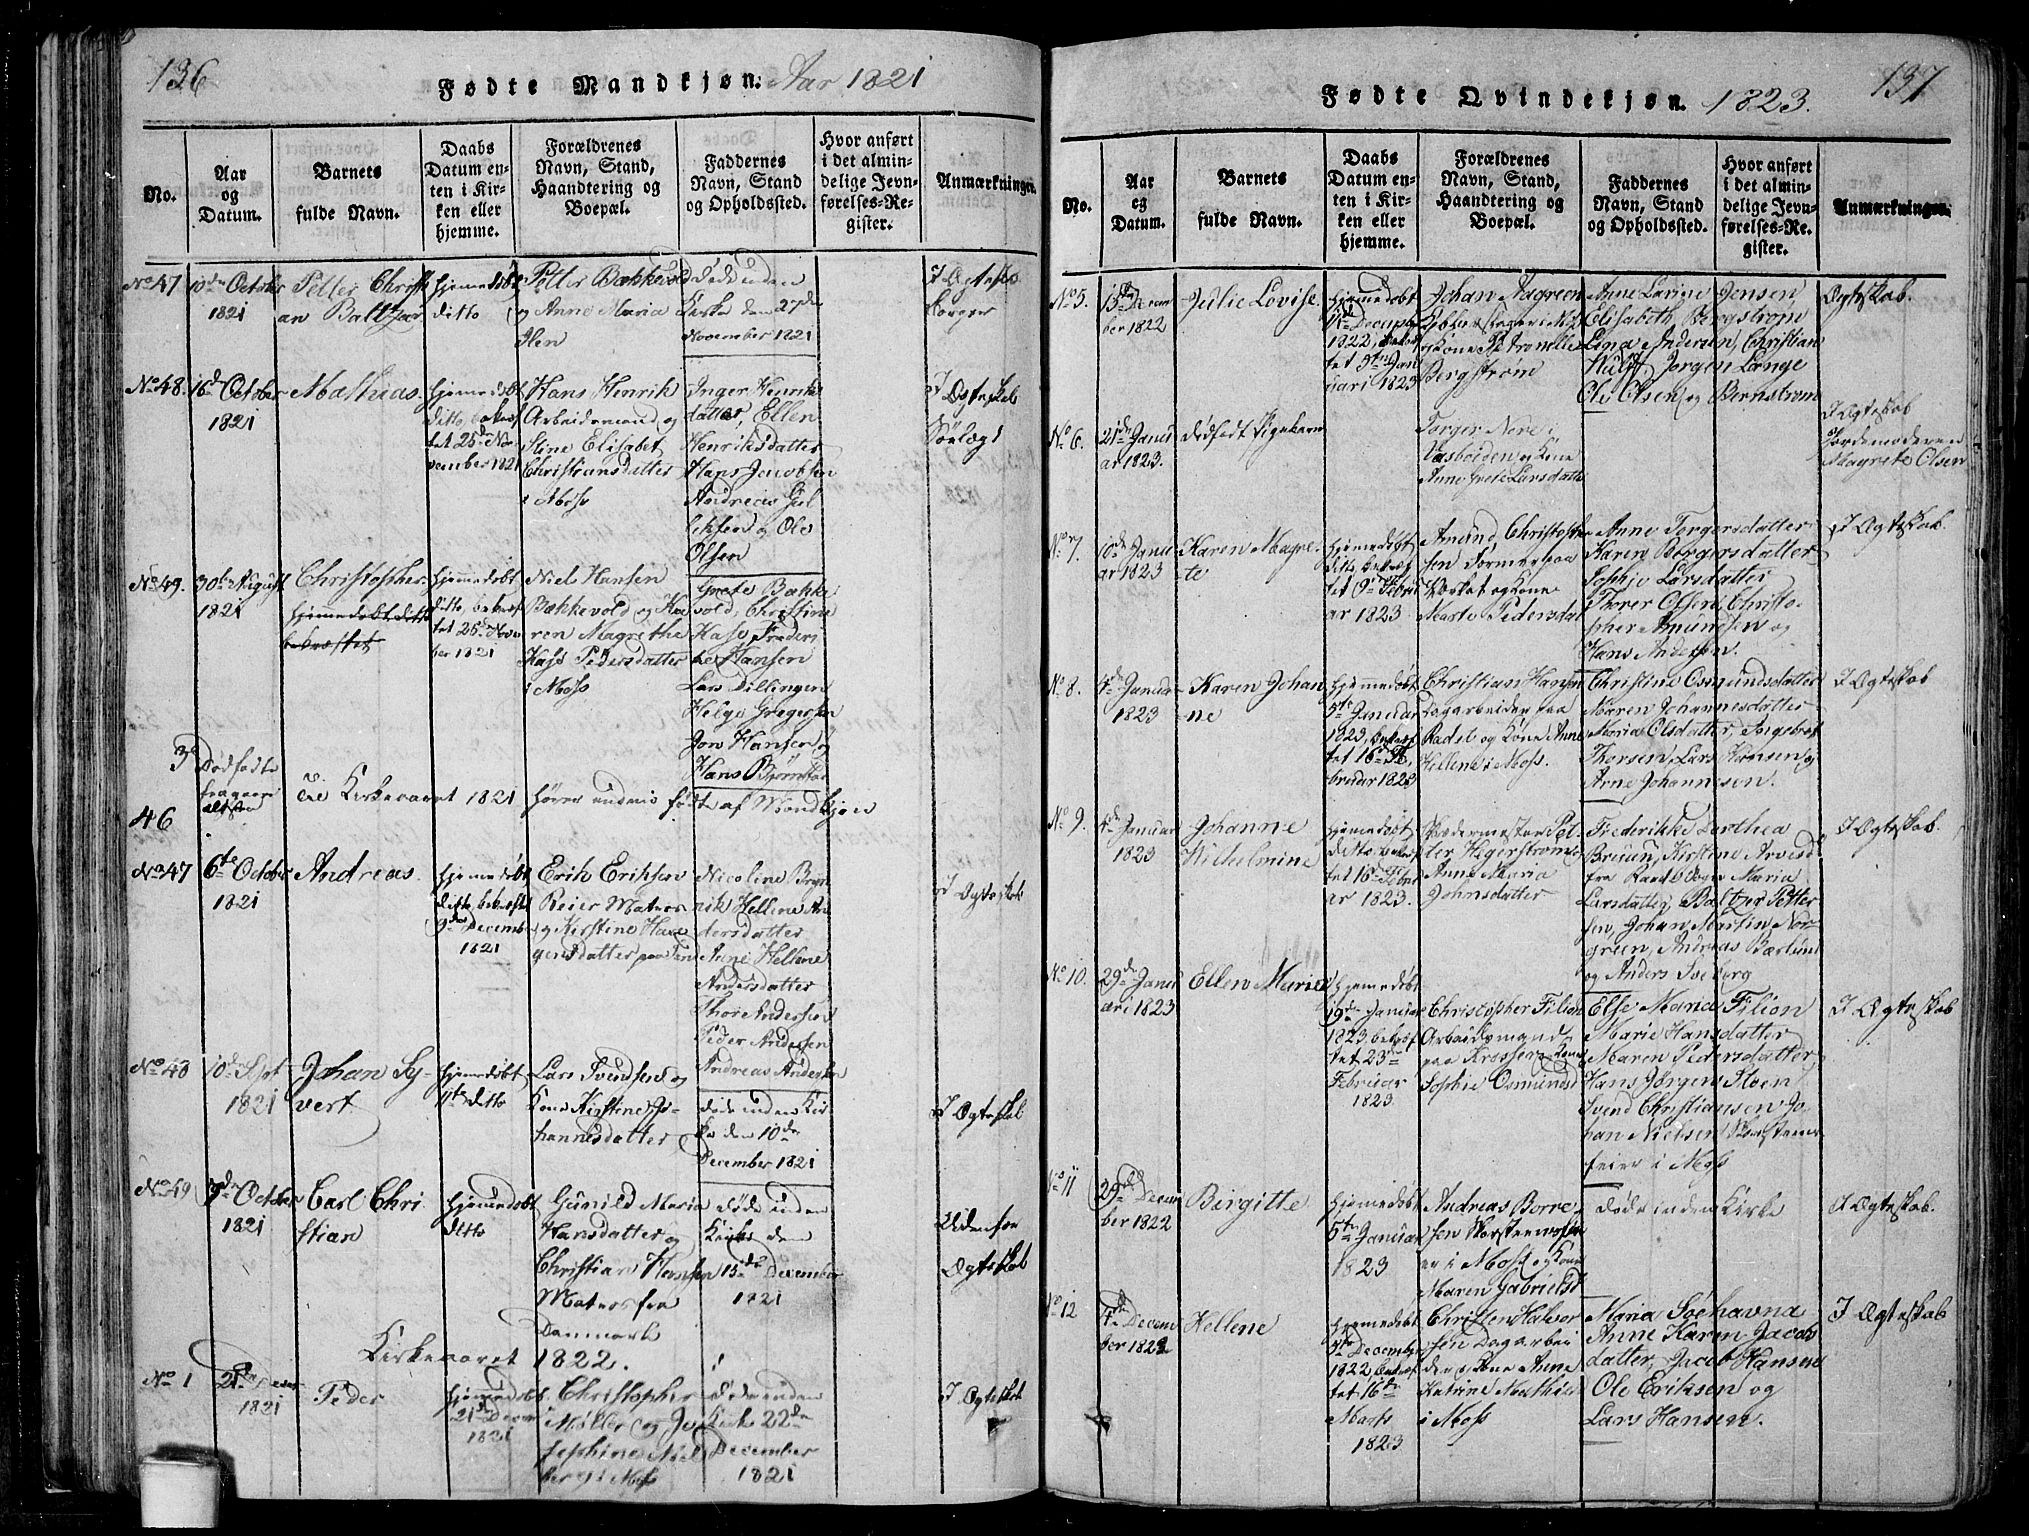 136
Fødte Mandkjøn. Aar 1821
No.
Aar
og
Datum.
Barnets
fulde Navn.
Daabs
Datum en-
ten i Kir-
ken eller
hjemme.
Forældrenes
Navn, Stand,
Haandtering og
Boepæl.
Faddernes
Navn, Stand
og Opholdssted.
Hvor anført
i det almin-
delige Jevn-
førelses-Re-
gister.
Anmærkninger.
No 47
10de October
1821
Petter Christi
an Baltzar
hjemedøbt
ditto
Petter Bækkevold
og Anne Maria
Døde uden
Kirke den 27de
November 1821
No 48.
16de October
1821
Mathias.
hjemedøbt
ditto bekref
tet 25de No
vember 1821
Hans Henrik
Arbeidsmand og
Stine Elisabet
Christiansdatter
i Moss
Inger Henrik
datter, Ellen
Henriksdatter
Hans Jacobsen
Andreas Gul
liksen og Ole
Olsen
I Ægteskab
No 49.
30te August
1821
Christopher.
hjemmedøbt ditto
bekræftet
hjemmedøbt
ditto, bekref
tet 25de Novem
ber 1821
Niels Hansen
Bækkevold og Ka
ren Magrethe
Kass Pedersdatter
i Moss
Grete Bække
vold, Christine
Kass, Frederi
ke Hansen
Lars Dillingen
Helge Gregersen
Jon Hansen og
Hans Bjørnstad
3
Dødfødte
fragaaer
altsaa
46
de Kirkeaaret 1821 hører endvis fødte af Mandkjøn
No 47
6te October
1821
Andreas.
hjemedøbt
ditto bekrefte
9de December
1821
Erik Eriksen
Reier Matros
og Kirstine Haa
gensdatter
Nicoline Bryn
nik Hellene An
dersdatter
Anne Hellene
Andersdatter
Thore Andersen
Peder Andersen
Andreas Andersen
I Ægteskab
No 48
10de Sept
1821
Johan Sy-
vert
hjemedøbt
11te ditto
Lars Svendsen og
Kone Kirstine Jo-
hannesdatter
døde inden Kir-
ke den 10de
December 1821
I Ægteskab
No 49
9de October
1821
Carl Chri
stian
hjemedøbt
ditto
Gunild Maria
Hansdatter og
Christian Hansen
Matros fra
Danmark
døde inden
Kirke den
15de December
1821
Udenfor
Ægteskab
Kirkeaaret 1822.
No 1
1821
Peder
hjemedøbt
21de Decem
1821
Christopher
Møller og Jo
sephine Niel
i Moss
Døde inden
Kirke 22de
December
1821
I Ægteskab
137
Fødte Qvindekjøn. 1823.
No.
Aar
og
Datum.
Barnets
fulde Navn.
Daabs
Datum en-
ten i Kir-
ken eller
hjemme.
Forældrenes
Navn, Stand,
Haandtering og
Boepæl.
Faddernes
Navn, Stand
og Opholdssted.
Hvor anført
i det almin-
delige Jevn-
førelses-Re-
gister.
Anmærkninger.
No 5.
15de Decem
ber 1822
Julie Lovise.
hjemedøbt
December
1822, bekref
tet 5te Janu
ari 1823
Johan Nagreen
Kobberslager i Moss
og Kone Petronelle
Bergstrøm
Anne Lavine Jensen,
Elisabeth Bergstrøm
Lina Andersen, Christian
Wulff, Jørgen Lange
Ole Olsen og Bernstrøm
Ægteskab.
No 6.
21de Janu
ar 1823.
dødfødt Pigebarn
Torger Nere i
Vasboiden og Kone
Anne Grete Larsdatter
I Ægteskab
Jordemoderen
Magrete Olsen
No 7.
10de Janu
ar 1823
Karen Magre-
te
hjemedøbt
ditto, bekræf
tet 9de Febru
ar 1823
Amund Christophe
sen Former paa
Værket og Kone
Marte Pedersdat
Anne Torgersdatter
Karen Borgersdatter
Sophie Larsdatter
Thorer Olsen, Christo-
pher Amundsen og
Hans Andersen.
I Ægteskab.
No 8.
4de Januar
1823
Karen Johan
ne
hjemmedøbt
5te Januar
1823, bekref
tet 16de Fe
bruar 1823
Christian Hansen
Dagarbeider fra
Rødel og Kone Anne
Hellene i Moss.
Christine Osmundsdatter
Maren Johannesdatter
Maria Olsdatter, Ingebret
Thorsen, Lars Hansen og
Arne Johannesen.
I Ægteskab
No 9.
4de Januar
1823
Johanne
Wilhelmine
hjemedøbt
ditto, bekref
tet 16de Febru
ar 1823.
Skrædermester Pet-
ter Hegerstrøm og
Anne Maria
Johnsdatter
Frederikke Dorthea
Bruun, Kirstine Arvesd
fra Raade, Maria
Larsdatter, Baltzer Petter
sen, Johan Martin Nor-
green, Andreas Bærlund
og Anders Sveberg
I Ægteskab.
No 10.
29de Janu
ari 1823
Ellen Marie
hjemedøbt
19de Januar
1823, bekref
tet 23de
Februar
1823
Christopher Filion
Arbeidsmand
paa Krossern Kone
Sophie Osmundsd
Else Maria Filion
Marie Hansdatter
Maren Pedersdatter
Hans Jørgen Moen
Svend Christiansen Jo
han Nielsen Skorstens
feier i Moss
I Ægteskab
No 11
29de Decem
ber 1822
Birgitte
hjemedøbt
5te Januar
1823
Andreas Borre
sen Skorsteensfei
er i Moss og Kone
Maren Gabrielsd
døde inden Kirke
I Ægteskab.
No 12
4de Decem
ber 1822
Hellene
hjemedøbt
5te December
1822, bekref
tet 16te
Marts
1823
Christen Halvor
sen Dagarbei
der, Kone Anne
Katrine Mathia
i Moss
Maria Søehavna
Anne Karen Jacobs
datter, Jacob Hansen
Ole Eriksen og
Lars Hansen.
I Ægteskab